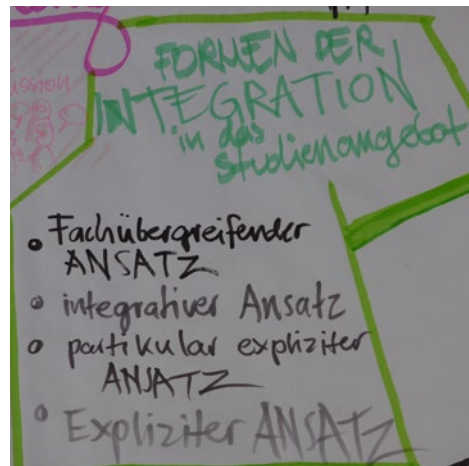 FORMEN DER
INTEGRATION
in das
Studienangebot
• Fachübergreifender
ANSATZ
• integrativer Ansatz
• partikular expliziter
ANSATZ
• Expliziter ANSATZ